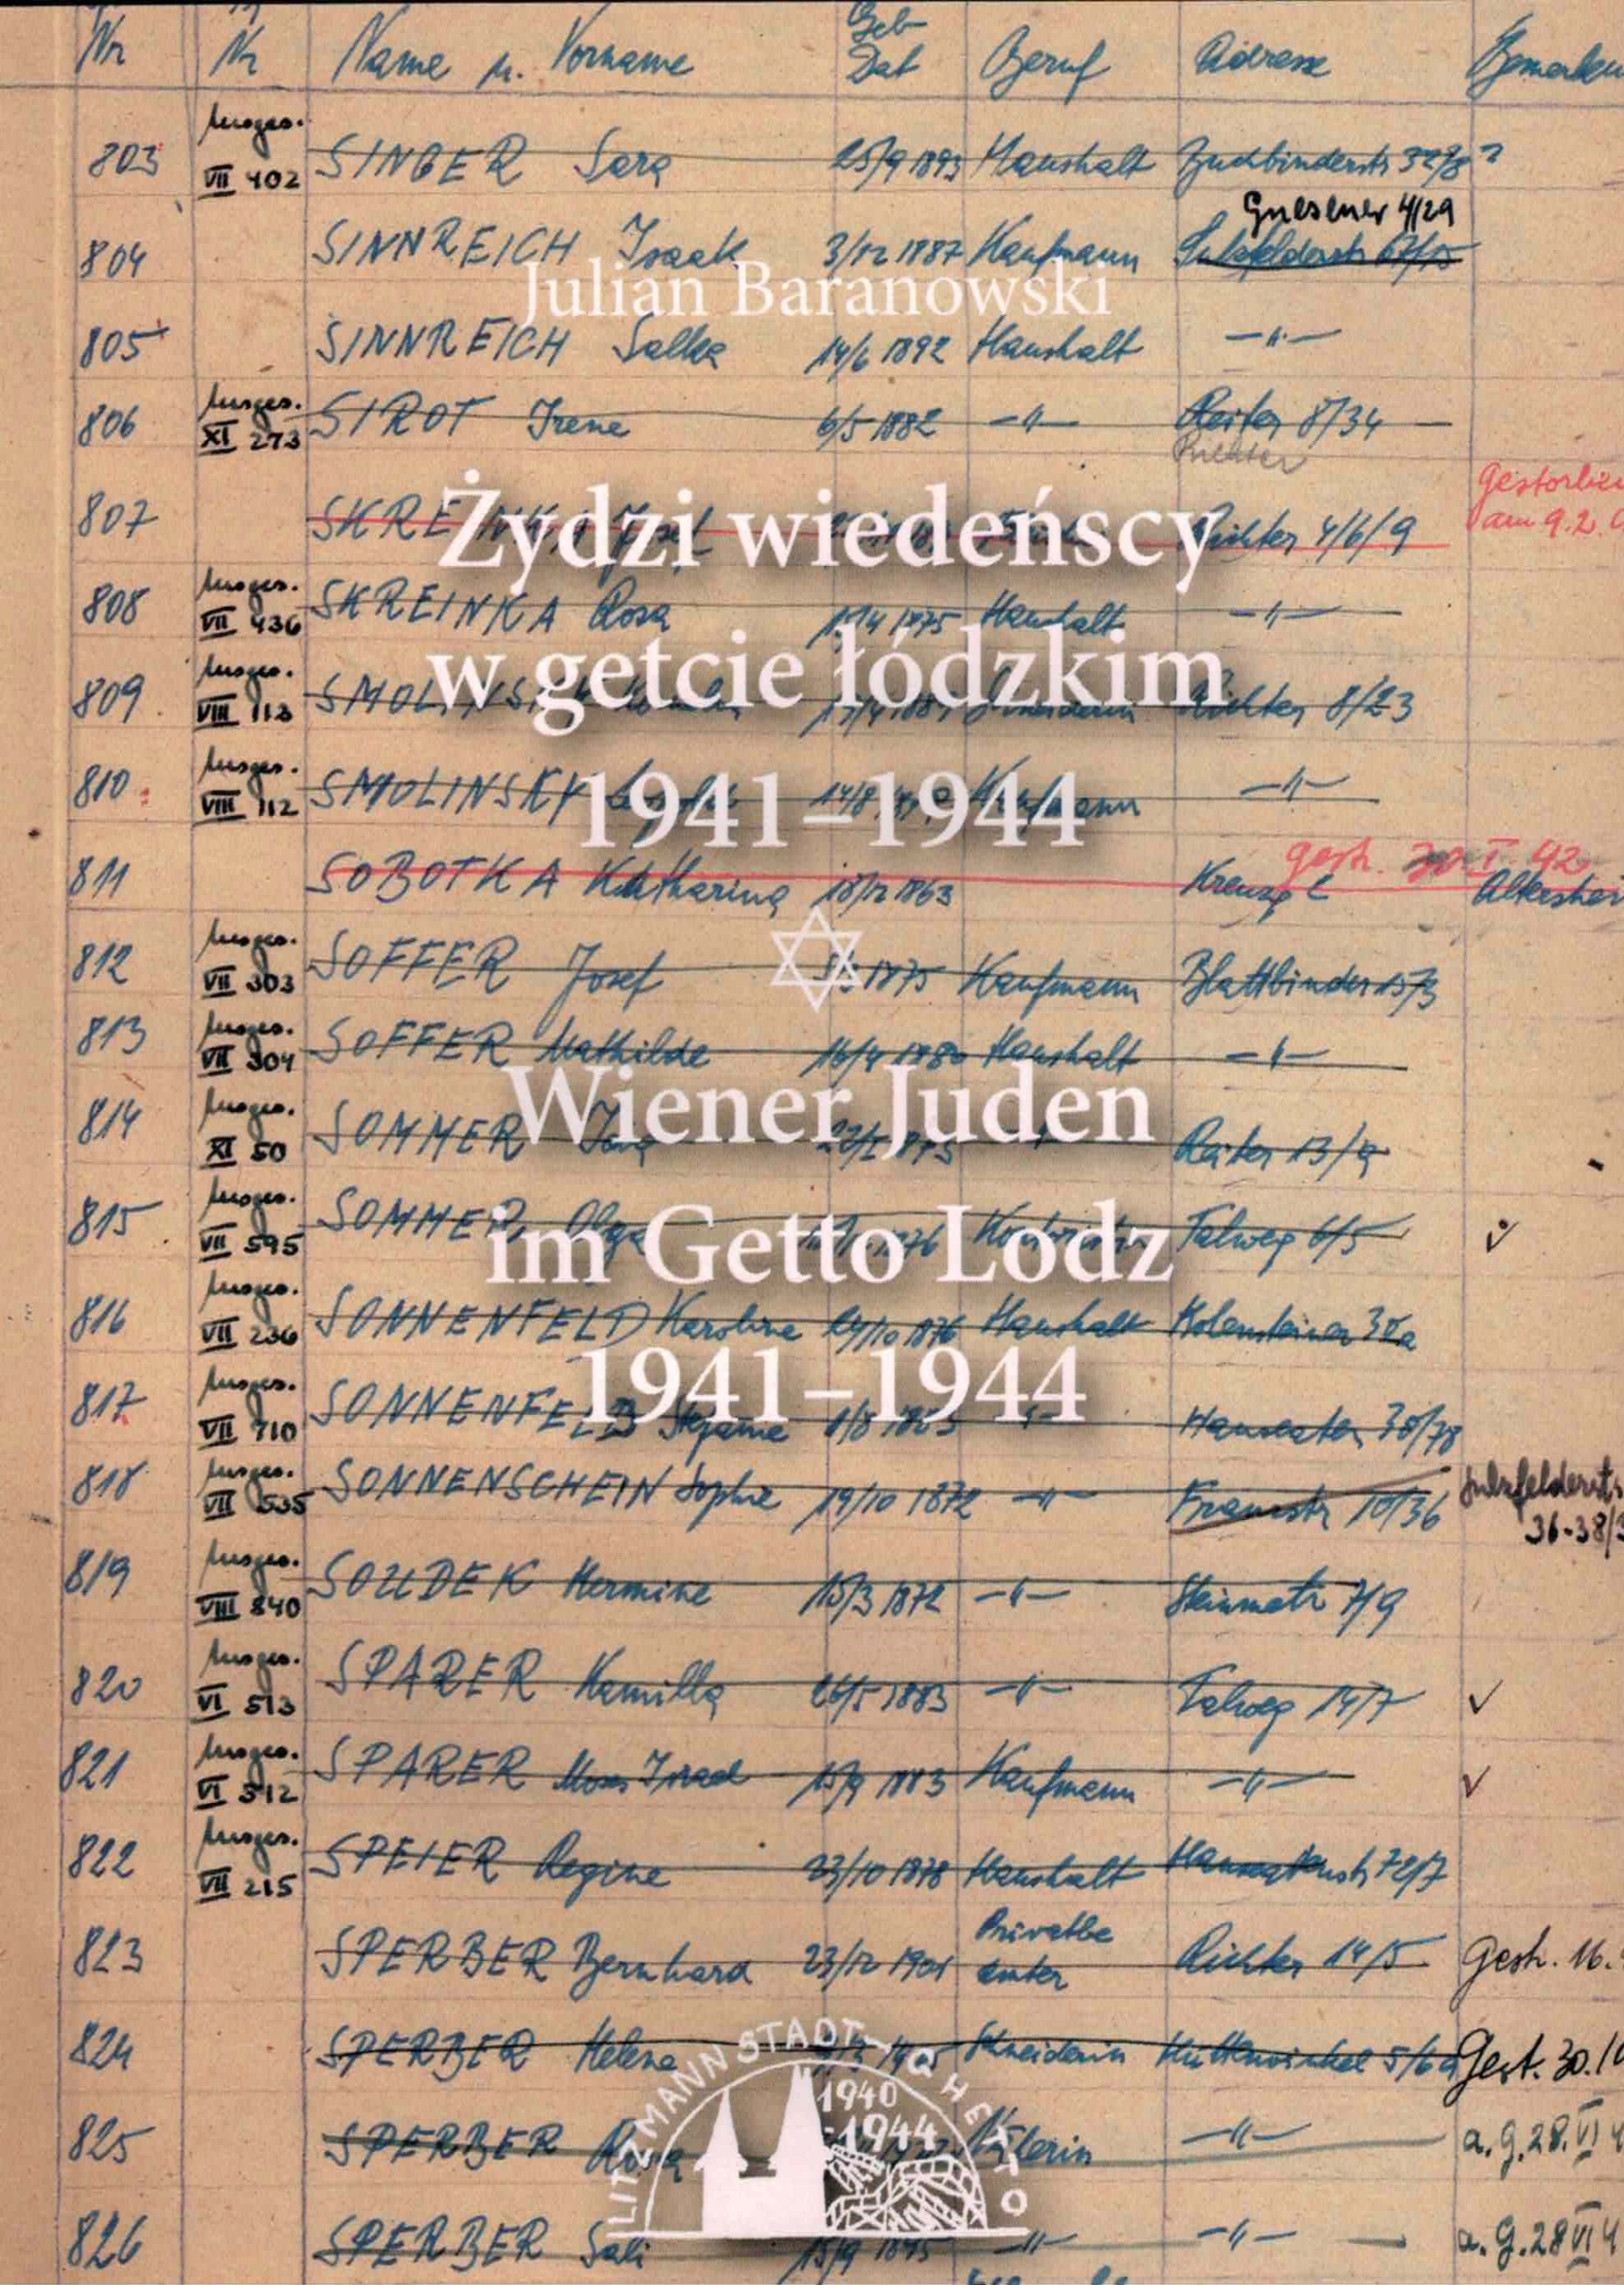 Nr Nr Name u. Vorname Geb Dat Beruf Adresse
803 Ausges. VII 402 SINGER Sara 25/9 1893 Haushalt 32/8 ?
Gnesener 4/29
804 SINNREICH Isaak 3/12 1887 Kaufmann Sulzfelderstr 67/15
Julian Baranowski
805 SINNREICH Salka 14/6 1892 Haushalt —"—
806 Ausges. XI 273 SIROT Irene 6/5 1882 —"— Reiter 8/34
Richter
Żydzi wiedeńscy
807 Richter 4/6/9 am 9.2.
808 Ausges. VII 436 SKREINKA Rosa 1875 Haushalt —"—
w getcie łódzkim
809 Ausges. VIII 113 Richter 8/23
810 Ausges. VIII 112 SMOLINSKY Kaufmann —"—
1941–1944
gest. 30.I.42
811 SOBOTKA Katharina 18/12 1863
812 Ausges. VII 303 SOFFER Josef 1875 Kaufmann Blattbinder 15/3
813 Ausges. VII 304 SOFFER Mathilde 16/4 1880 Haushalt —"—
Wiener Juden
814 Ausges. XI 50 SOMMER Reiter 13/9
815 Ausges. VII 595 SOMMER Olga Talweg 6/5
im Getto Lodz
816 Ausges. VII 236 SONNENFELD Karoline 24/10 1876 Haushalt
1941–1944
817 Ausges. VII 710 SONNENFELD Stefanie —"— 30/78
818 Ausges. VII 535 SONNENSCHEIN Sophie 19/10 1872 —"— Franzstr 10/36 Sulzfelderstr
36-38/
819 Ausges. VIII 840 Hermine 15/3 1872 —"— 7/9
820 Ausges. VI 513 SPARER Kamilla 26/5 1883 —"— Talweg 14/7
821 Ausges. VI 512 SPARER Moses Israel 15/9 1883 Kaufmann —"—
822 Ausges. VII 215 SPEIER Regine 23/10 1878 Haushalt 72/7
823 SPERBER Bernhard 23/12 1901 Richter 14/5 Gest. 16.
824 SPERBER Helene Schneiderin 5/6a Gest. 30.
LITZMANNSTADT-GHETTO
1940
-1944
825 SPERBER Rosa —"— a.g.28.VI
826 SPERBER Sali 15/9 1895 —"— —"— a.g.28 VI